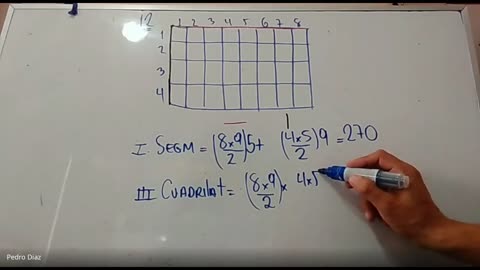 12
1 2 3 4 5 6 7 8
1
2
3
4
I SEGM = (8x9/2)5 + (4x5/2)9 = 270
III CUADRILAT = (8x9/2) x 4x5
Pedro Diaz